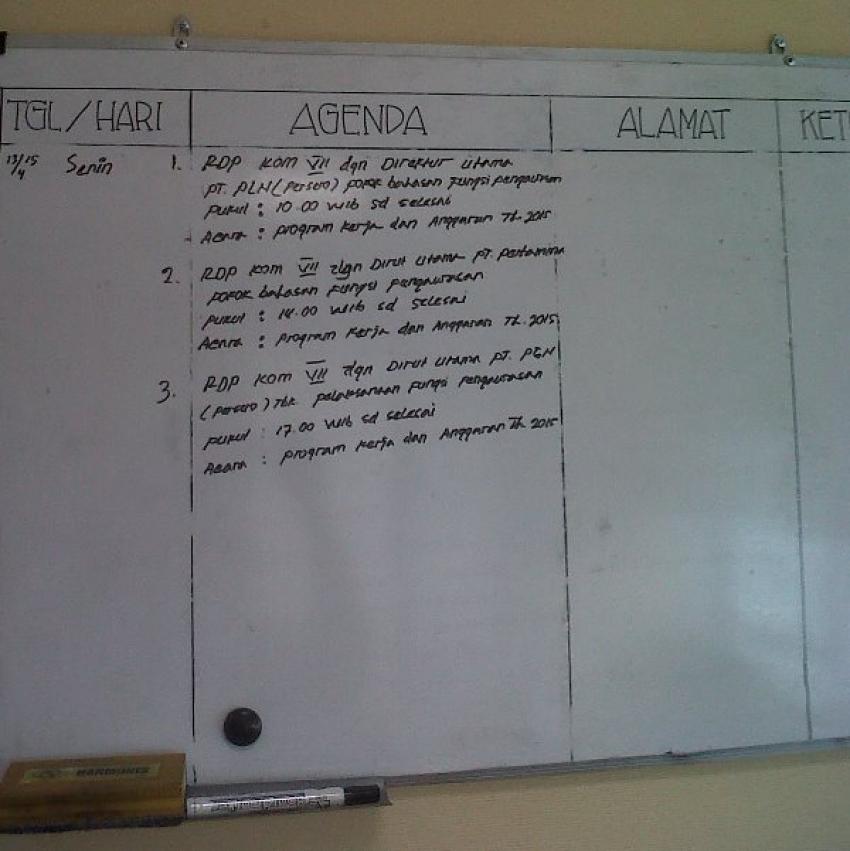 TGL/HARI AGENDA ALAMAT KET
13/15 Senin 1. RDP Kom VII dgn Direktur Utama
4
PT. PLN (Persero) Pokok bahasan Fungsi Pengawasan
Pukul : 10.00 WIB sd selesai
Acara : Program Kerja dan Anggaran Th. 2015
2. RDP Kom VII dgn Dirut Utama PT. Pertamina
Pokok bahasan Fungsi Pengawasan
Pukul : 14.00 WIB sd selesai
Acara : Program Kerja dan Anggaran Th. 2015
3. RDP Kom VII dgn Dirut Utama PT. PGN
(Persero) Tbk. Pelaksanaan Fungsi Pengawasan
Pukul : 17.00 WIB sd selesai
Acara : Program Kerja dan Anggaran Th. 2015